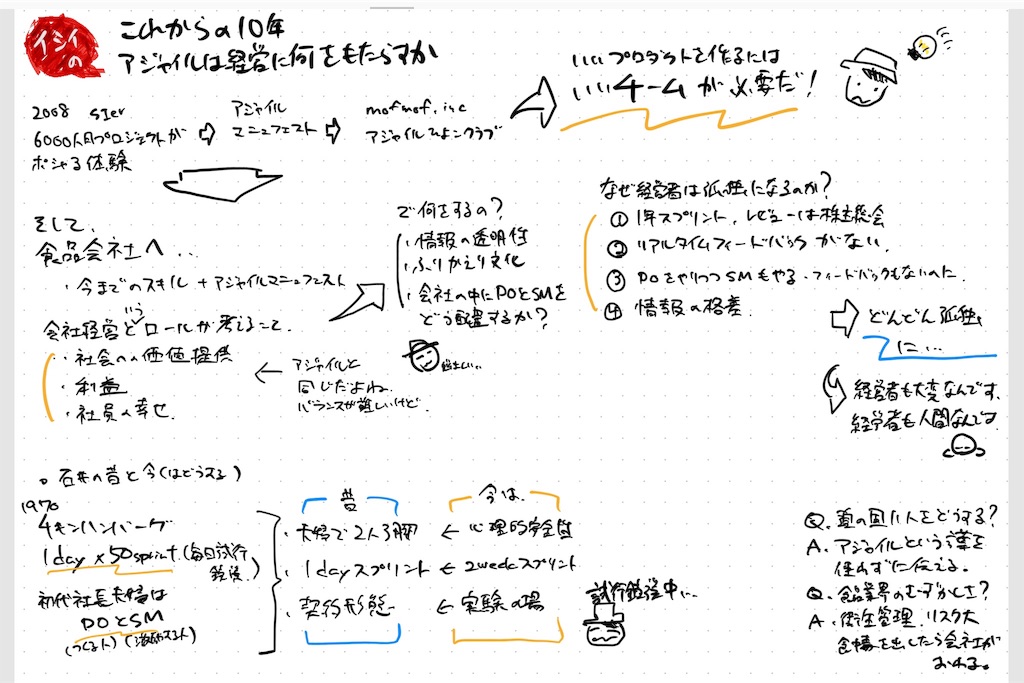 イシイの
これからの10年
アジャイルは経営に何をもたらすか
2008 SIer
6000人月プロジェクトが
ポシャる体験
アジャイル
マニュフェスト
mofmof.inc
アジャイルひよこクラブ
いいプロダクトを作るには
いいチームが必要だ!
そして、
食品会社へ...
・今までのスキル+アジャイルマニュフェスト
会社経営というロールが考えること。
・社会への価値提供
・利益
・社員の幸せ.
アジャイルと
同じだよね.
バランスが難しいけど.
で何をするの?
・情報の透明性
・ふりかえり文化
・会社の中にPOとSMを
どう配置するか?
なぜ経営者は孤独になるのか?
① 1年スプリント、レビューは株主総会
② リアルタイムフィードバックがない.
③ POをやりつつSMもやる・フィードバックもないのに.
④ 情報の格差.
どんどん孤独
に...
経営者も大変なんです.
経営者も人間なんです
。石井の昔と今(はどうする)
1970
チキンハンバーグ
1day×50sprint(毎日試行錯誤.)
初代社長夫婦は
POとSM
(つくる人)
昔
・夫婦で2人3脚
・1dayスプリント
・契約形態
今は.
← 心理的安全性
← 2weekスプリント
← 実験の場
試行錯誤中...
Q. 裏の国の人をどうする?
A. アジャイルという言葉を
使わずに伝える。
Q. 食品業界のむずかしさ?
A. 衛生管理、リスク大
食中毒を出したら会社が
おわる。